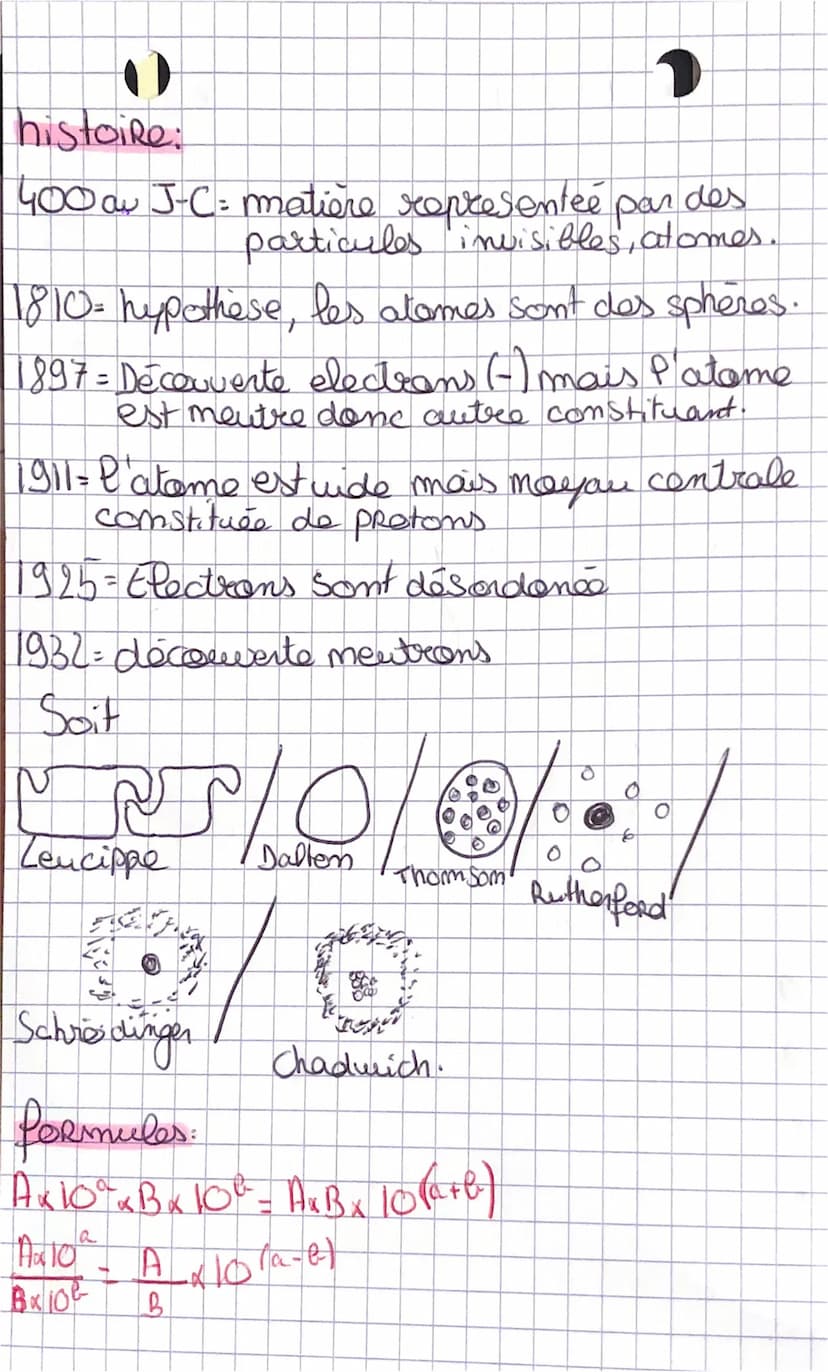 histoire:
400 av J-C = matière representeé par des
particules invisibles, atomes.
1810 = hypothèse, les atomes sont des sphères.
1897 = Découverte electrons (-) mais l'atome
est neutre donc autre constituant.
1911 = l'atome est vide mais noyau centrale
constituée de protons
1925 = Electrons sont désordonée
1932 = découverte neutrons
Soit
Leucippe / Daltem / Thomsom / Rutherford /
Schrödinger / Chadwich.
formules:
A x 10^a x B x 10^b = A x B x 10^(a+b)
A x 10^a / B x 10^b = A / B x 10^(a-b)